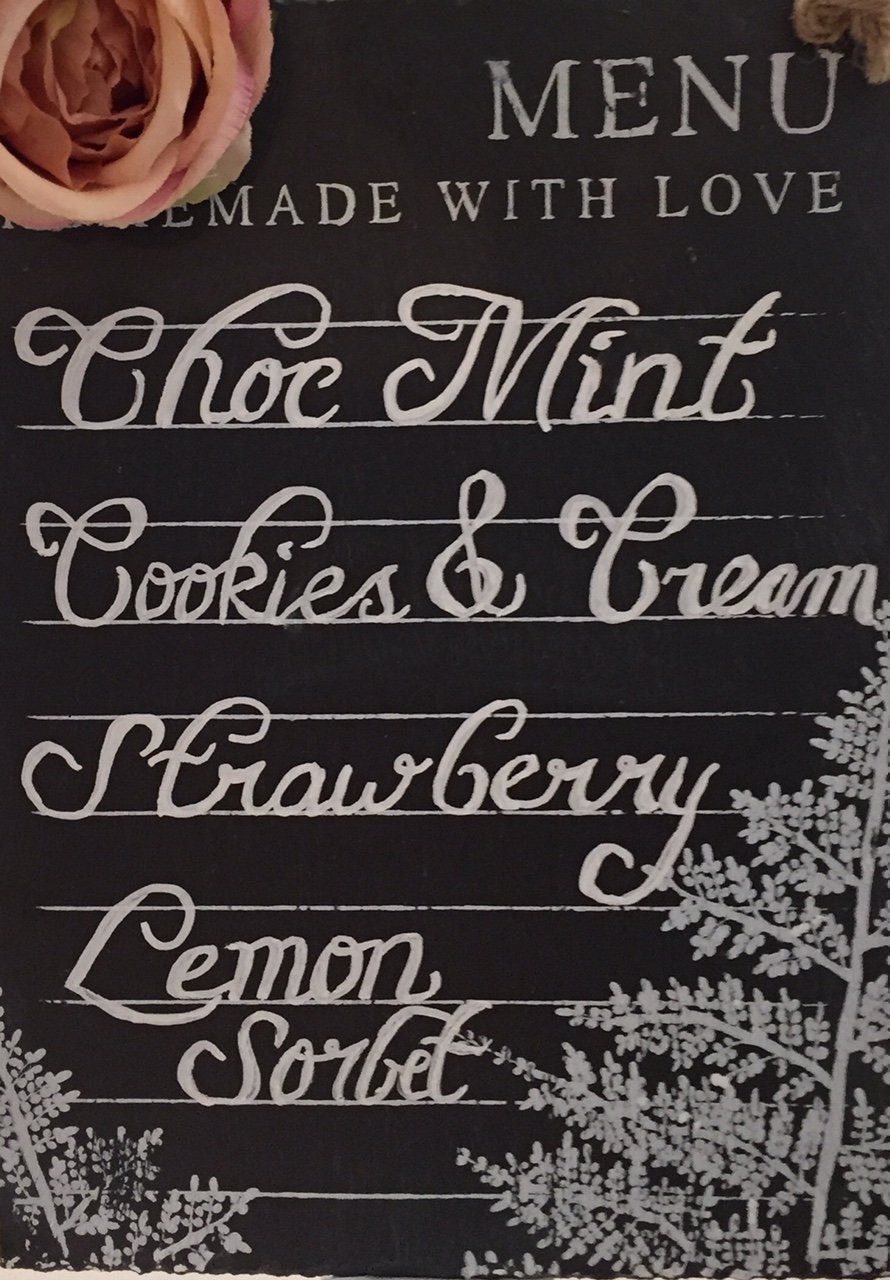 MENU
HOMEMADE WITH LOVE
Choc Mint
Cookies & Cream
Strawberry
Lemon
Sorbet